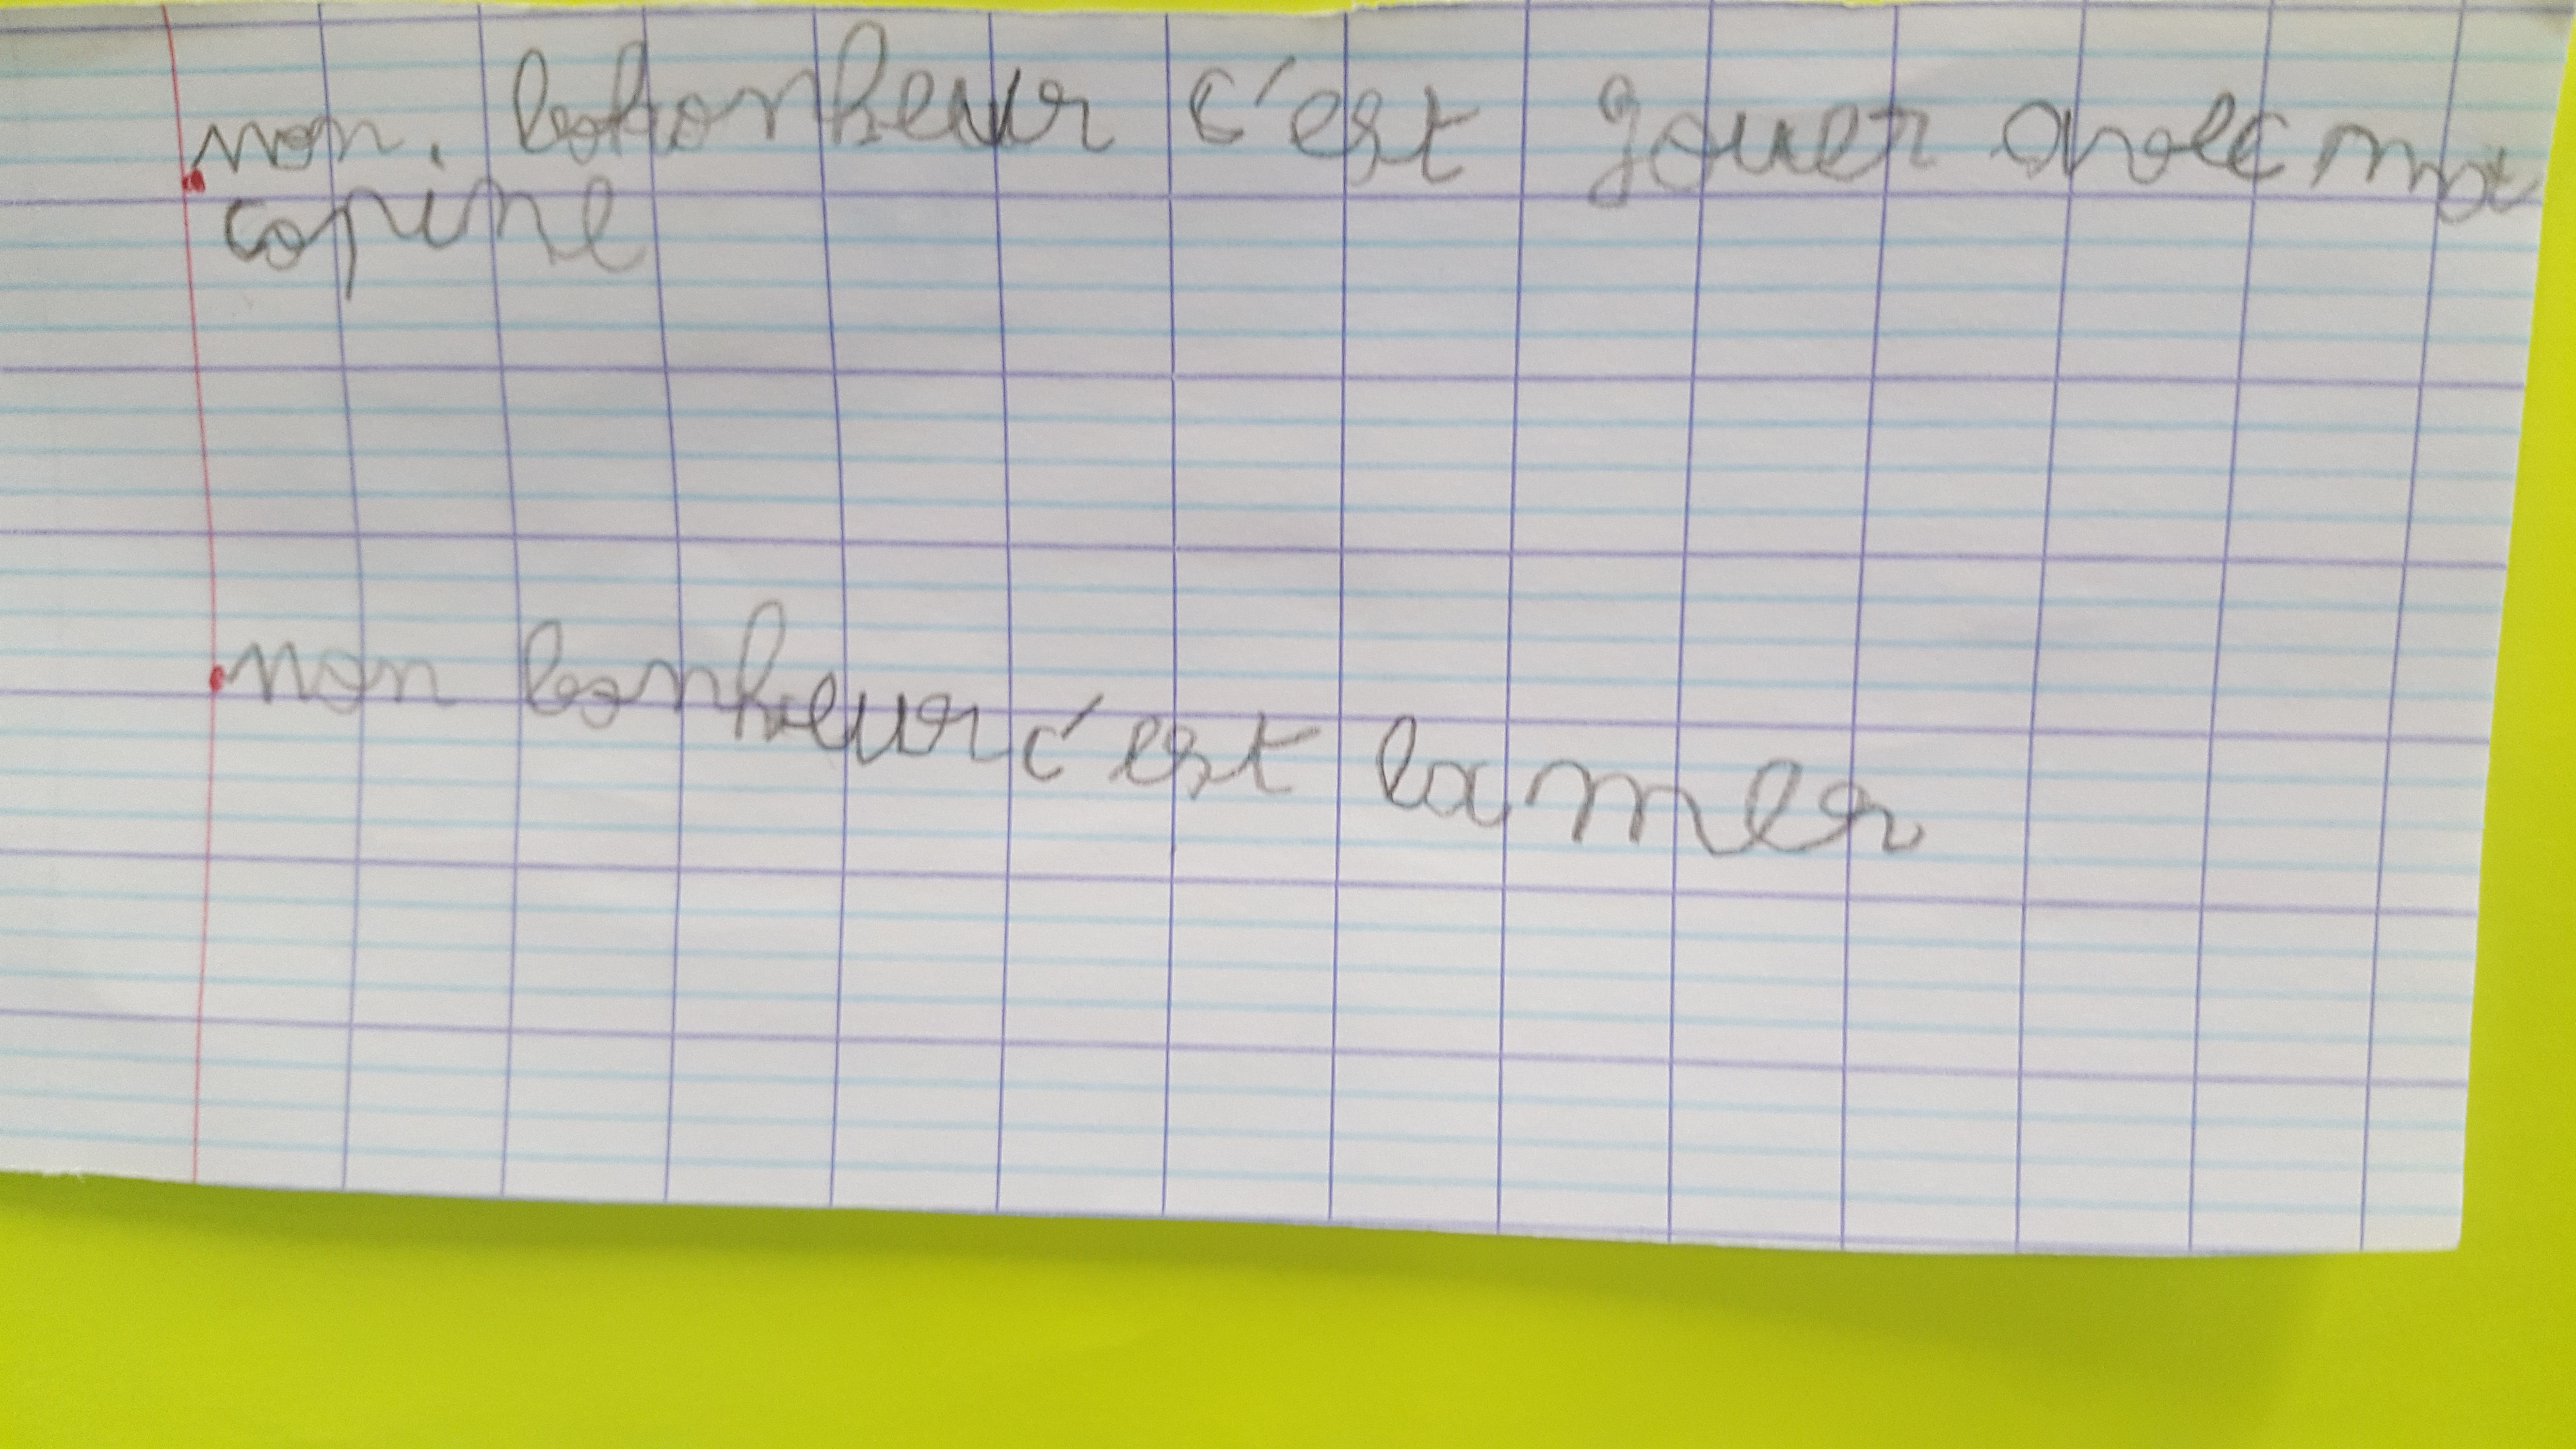 mon. bobonheur c'est jouer avec ma
copine
mon bonheur c'est la mer